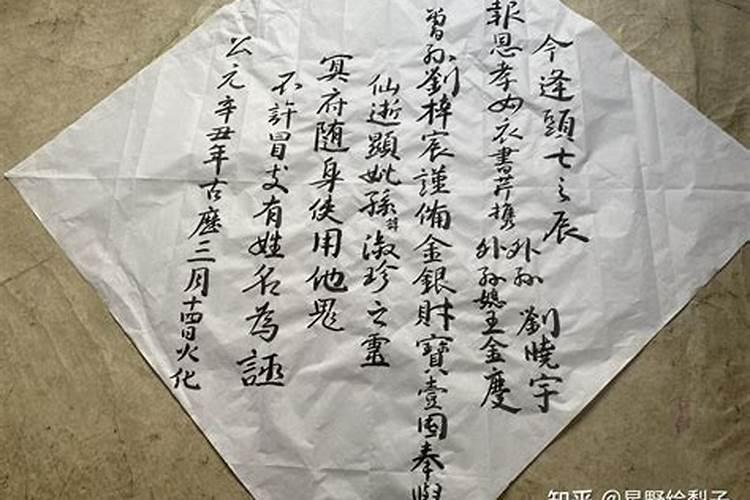 今逢頭七之辰
報恩孝女衣書芹携
外孙 劉曉宇
外孙媳王金慶
曾孙劉梓宸謹備金銀財寶壹囤奉與
仙逝顯妣孫諱淑珍之靈
冥府随身使用他鬼
不許冒支有姓名為
公元辛丑年古歷三月十四日火化
知乎 @星野绘梨子